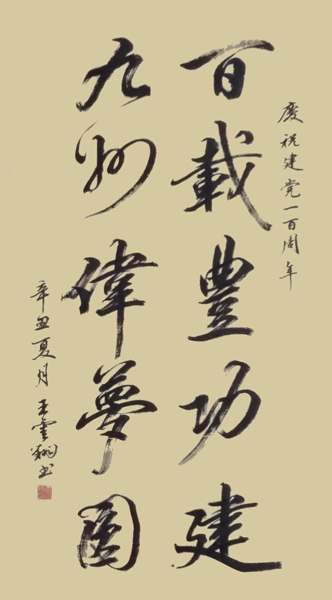 慶祝建党一百周年
百載豐功建
九州偉夢圓
辛丑夏月 王雲书